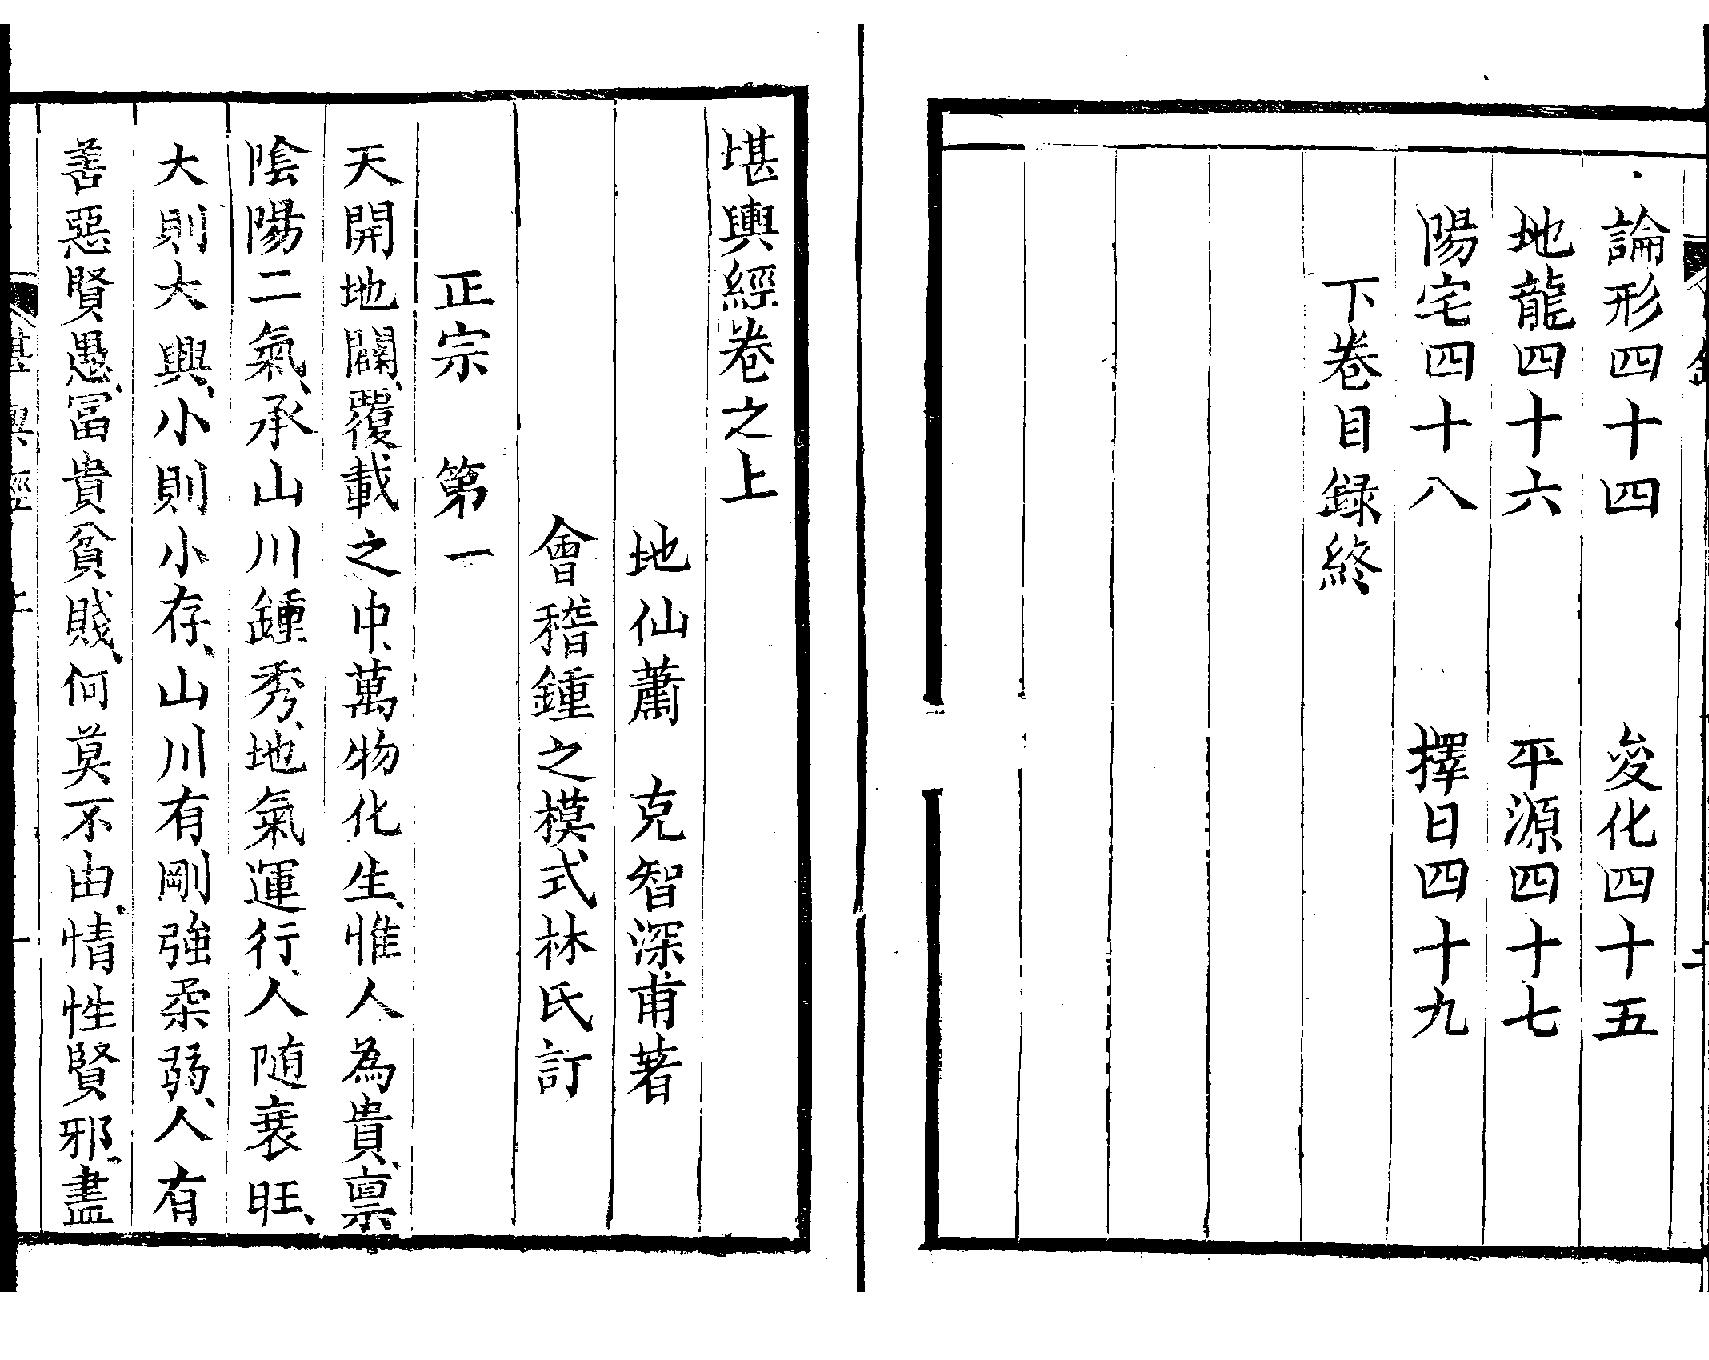 論形四十四　變化四十五
地龍四十六　平源四十七
陽宅四十八　擇日四十九
下卷目録終
堪輿經卷之上
地仙蕭　克智深甫著
會稽鍾之模式林氏訂
正宗　第一
天開地闢、覆載之中、萬物化生、惟人為貴、禀
陰陽二氣、承山川鍾秀、地氣運行、人随衰旺、
大則大興、小則小存、山川有剛強柔弱、人有
善惡賢愚、冨貴貧賤、何莫不由、情性賢邪、盡
堪輿經　上　一